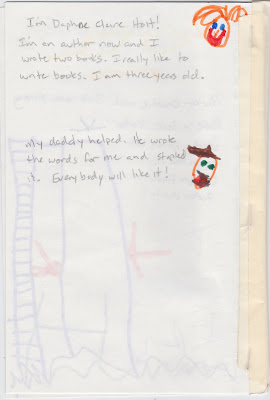 I'm Daphne Claire Holt!
I'm an author now and I
wrote two books. I really like to
write books. I am three years old.
My daddy helped. He wrote
the words for me and stapled
it. Everybody will like it!